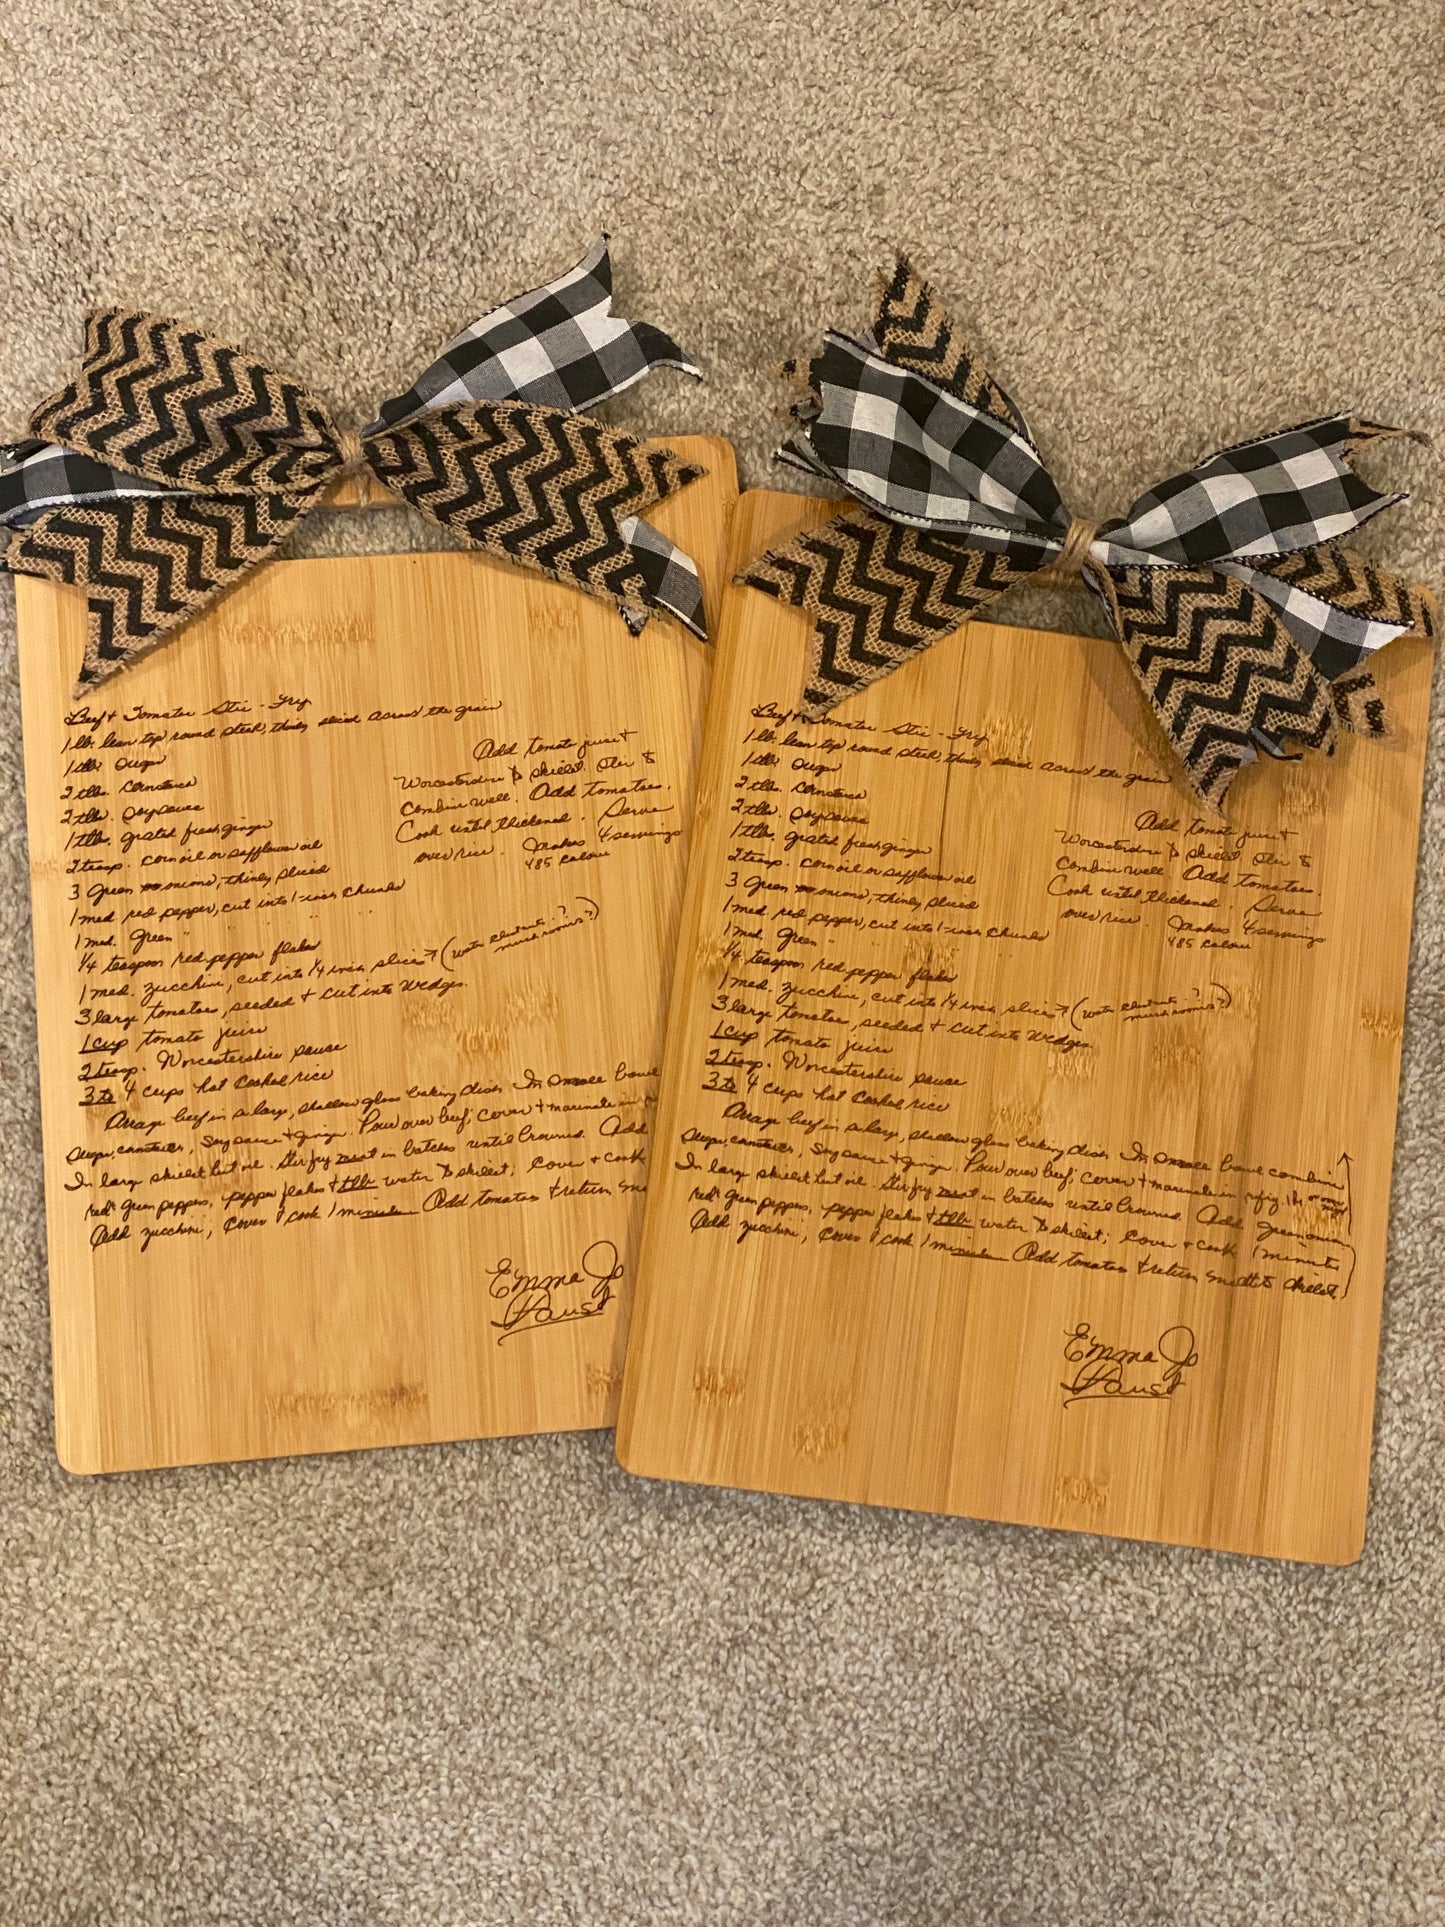 Beef & Tomato Stir-Fry
1 lb. lean top round steak, thinly sliced across the grain
1 tlb. sugar
2 tlbs. cornstarch
2 tlbs. soy sauce
1 tlb. grated fresh ginger
2 teasp. corn oil or safflower oil
3 green onions, thinly sliced
1 med. red pepper, cut into 1-inch chunks
1 med. green " " " "
1/4 teaspoon red pepper flakes
1 med. zucchini, cut into 1/4 inch slices (water chestnuts? mushrooms?)
3 large tomatoes, seeded & cut into wedges.
1 cup tomato juice
2 teasp. Worcestershire sauce
3 to 4 cups hot cooked rice
Arrange beef in a large, shallow glass baking dish. In small bowl
sugar, cornstarch, soy sauce & ginger. Pour over beef; cover & marinate in
In large skillet heat oil. Stir fry meat in batches until browned. Add
red & green peppers, pepper flakes & tlb. water to skillet; cover & cook
Add zucchini; cover & cook 1 minute. Add tomatoes & return
Add tomato juice &
Worcestershire to skillet. Stir to
combine well. Add tomatoes.
Cook until thickened. Serve
over rice. Makes 4 servings
485 calorie
Emma Jo
Faust
Beef & Tomato Stir-Fry
1 lb. lean top round steak, thinly sliced across the grain
1 tlb. sugar
2 tlbs. cornstarch
2 tlbs. soy sauce
1 tlb. grated fresh ginger
2 teasp. corn oil or safflower oil
3 green onions, thinly sliced
1 med. red pepper, cut into 1-inch chunks
1 med. green " " " "
1/4 teaspoon red pepper flakes
1 med. zucchini, cut into 1/4 inch slices (water chestnuts? mushrooms?)
3 large tomatoes, seeded & cut into wedges.
1 cup tomato juice
2 teasp. Worcestershire sauce
3 to 4 cups hot cooked rice
Arrange beef in a large, shallow glass baking dish. In small bowl combine
sugar, cornstarch, soy sauce & ginger. Pour over beef; cover & marinate in refrig. 1 h. or over night
In large skillet heat oil. Stir fry meat in batches until browned. Add green onion,
red & green peppers, pepper flakes & tlb. water to skillet; cover & cook 1 minute
Add zucchini; cover & cook 1 minute. Add tomatoes & return meat to skillet.
Add tomato juice &
Worcestershire to skillet. Stir to
combine well. Add tomatoes.
Cook until thickened. Serve
over rice. Makes 4 servings
485 calorie
Emma Jo
Faust